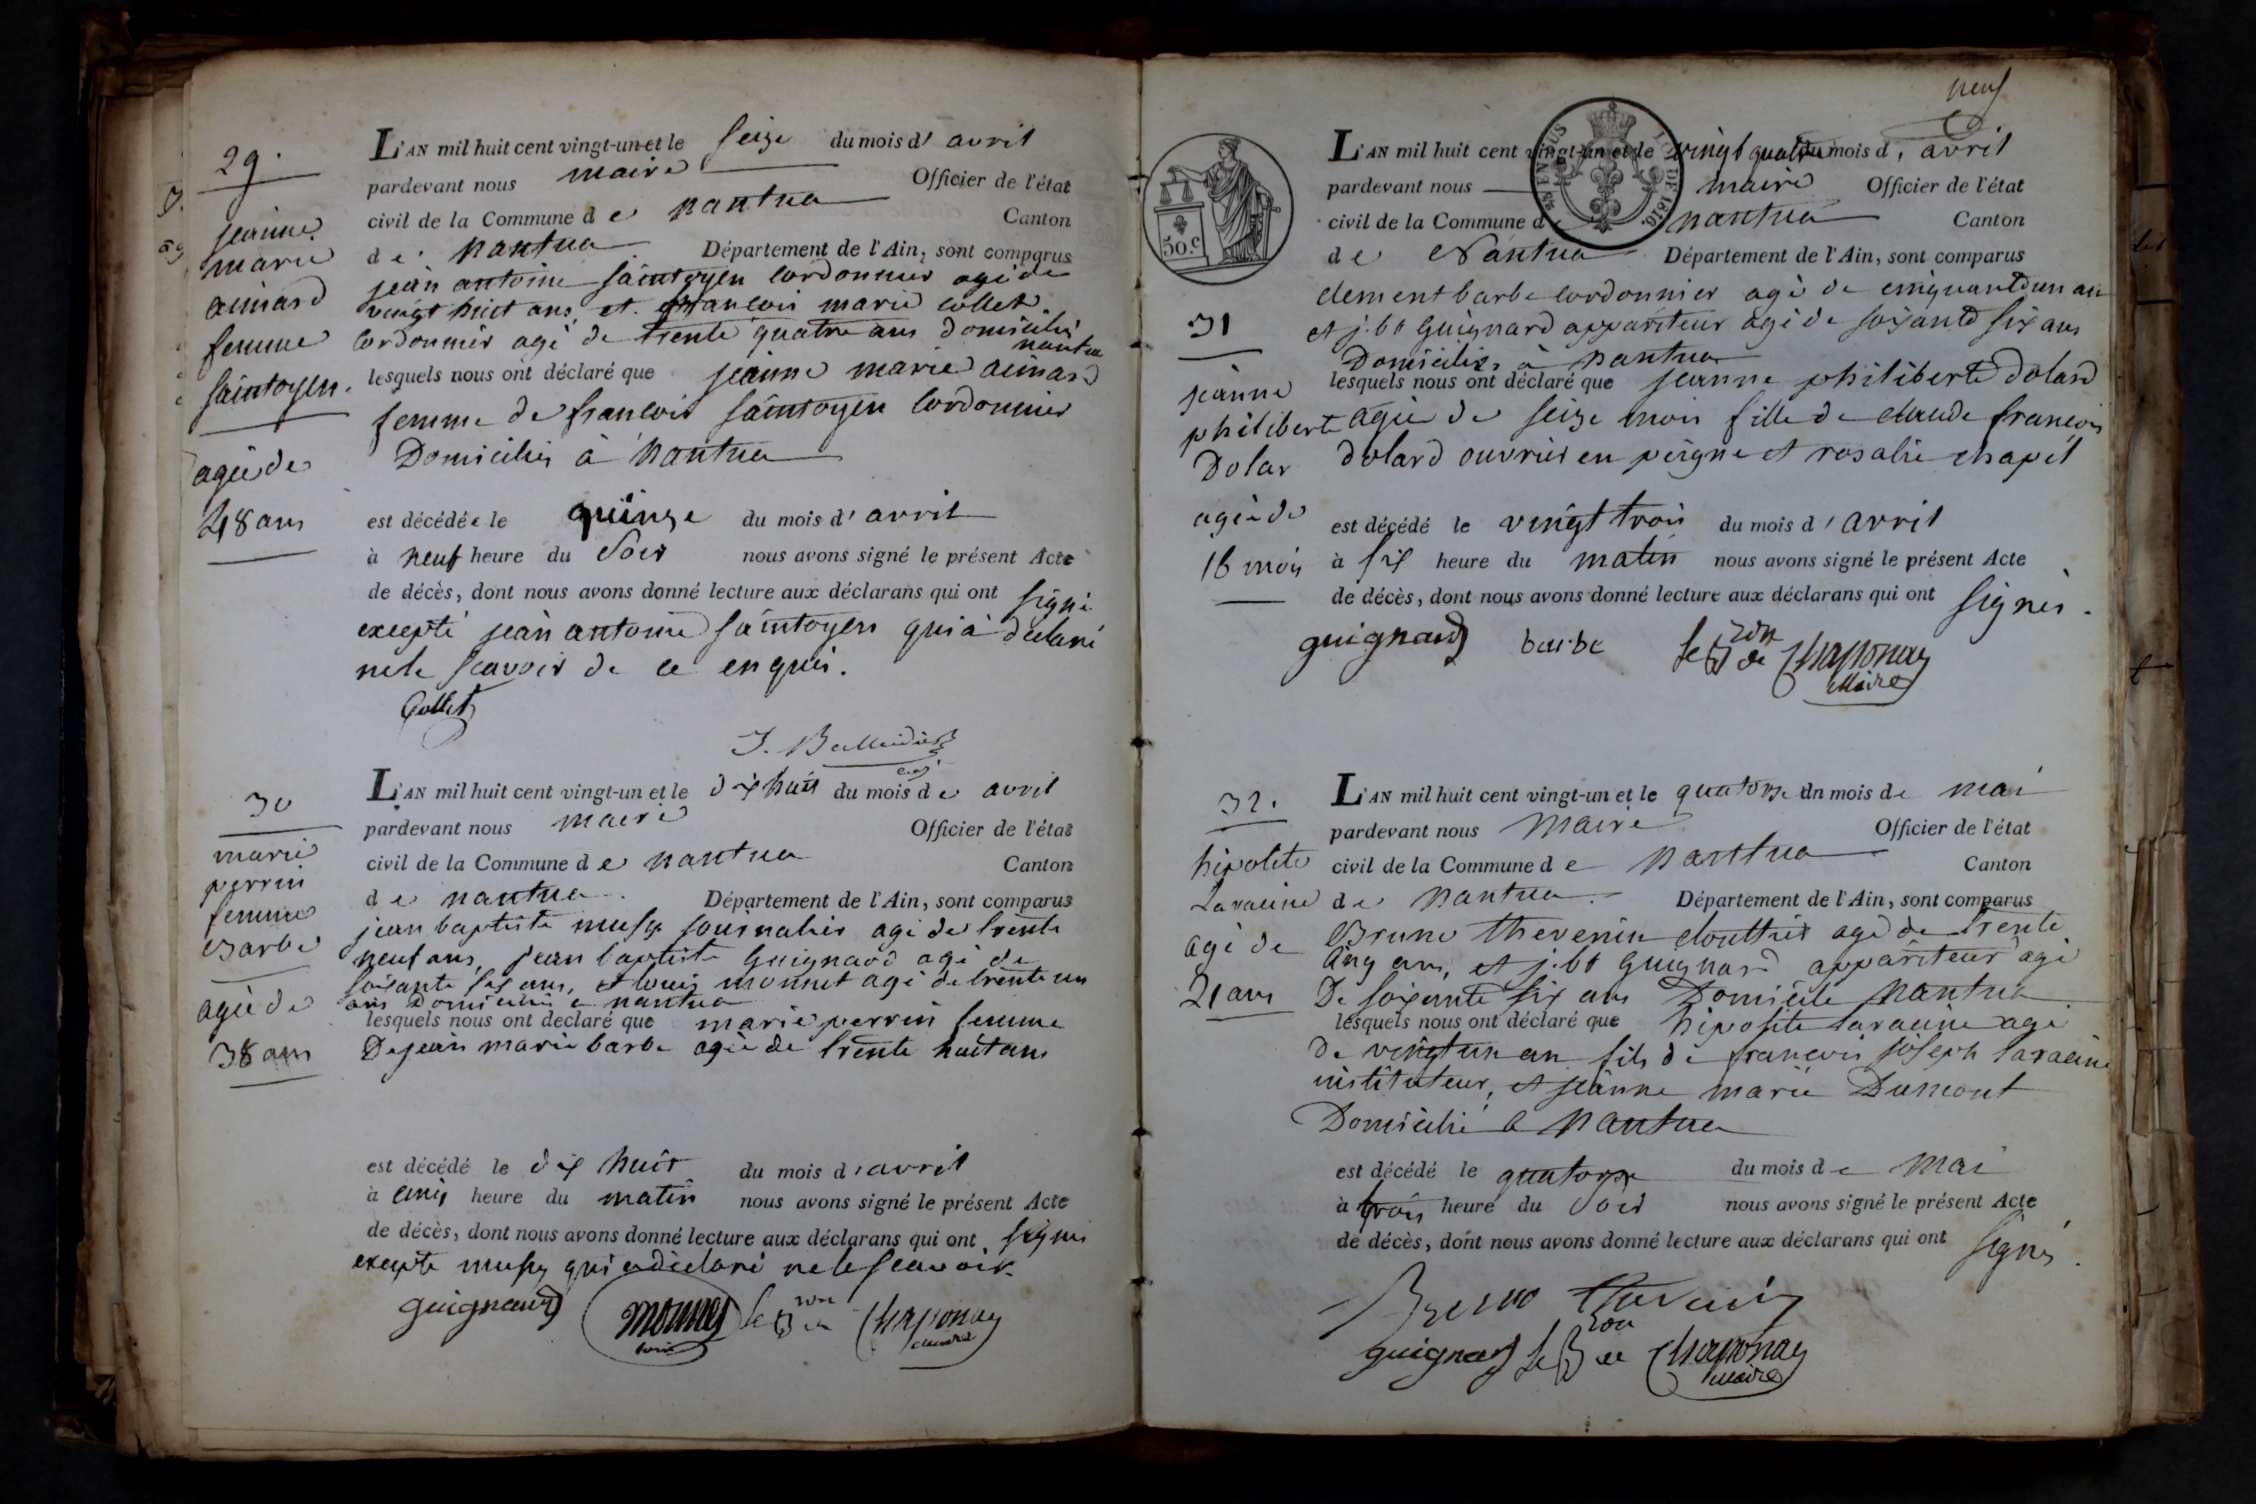 29.
jeanne
marie
aimard
femme
saintoyen.
agée de
48 ans
L'AN mil huit cent vingt-un et le seize du mois d'avril
pardevant nous maire Officier de l'état
civil de la Commune de nantua Canton
de nantua Département de l'Ain, sont comparus
jean antoine saintoyen cordonnier agé de
vingt huit ans, et francois marie collet
cordonnier agé de trente quatre ans domiciliés
nantua
lesquels nous ont déclaré que jeanne marie aimard
femme de francois saintoyen cordonnier
Domiciliés à nantua
est décédée le quinze du mois d'avril
à neuf heure du Soir nous avons signé le présent Acte
de décès, dont nous avons donné lecture aux déclarans qui ont signé
excepté jean antoine saintoyen qui à déclaré
ne le scavoir de ce enquis.
Collet
30
marie
perrin
femme
Barbe
agée de
38 ans
L'AN mil huit cent vingt-un et le dix huit du mois de avril
pardevant nous maire Officier de l'état
civil de la Commune de nantua Canton
de nantua Département de l'Ain, sont comparus
jean baptiste musy journalier agé de trente
neuf ans, jean baptiste Guignard agé de
soixante six ans, et louis monnet agé de trente un
ans Domicilié a nantua
lesquels nous ont déclaré que marie perrin femme
De jean marie barbe agée de trente huit ans
est décédé le dix huit du mois d'avril
à cinq heure du matin nous avons signé le présent Acte
de décès, dont nous avons donné lecture aux déclarans qui ont signés
excepte musy qui a déclaré ne le scavoir
guignard monnet le Bon de Chaponay
maire
neuf
50.c
LOI DE 1816.
31
jeanne
philiberte
Dolar
agée de
16 mois
L'AN mil huit cent vingt-un et le vingt quatre mois d'avril
pardevant nous maire Officier de l'état
civil de la Commune d nantua Canton
de Nantua Département de l'Ain, sont comparus
clement barbe cordonnier agé de cinquante un an
et j. bt Guignard appariteur agé de soixante six ans
Domiciliés à nantua
lesquels nous ont déclaré que jeanne philiberte Dolard
agée de seize mois fille de claude françois
dolard ouvrier en peigne et rosalie chapel
est décédé le vingt trois du mois d'avril
à six heure du matin nous avons signé le présent Acte
de décès, dont nous avons donné lecture aux déclarans qui ont signés.
guignard barbe le Bon de Chaponay
Maire
32.
hipolite
Laracine
agé de
21 ans
L'AN mil huit cent vingt-un et le quatorze du mois de mai
pardevant nous Maire Officier de l'état
civil de la Commune de nantua Canton
de nantua Département de l'Ain, sont comparus
Bruno thevenin clouttier agé de trente
cinq ans, et j. bt Guignard appariteur agé
De soixante six ans Domicile nantua
lesquels nous ont déclaré que hipolite laracine agé
de vingt un an fils de francois joseph laracine
instituteur, et jeanne marie Dumont
Domicilié a nantua
est décédé le quatorze du mois de mai
à trois heure du Soir nous avons signé le présent Acte
de décès, dont nous avons donné lecture aux déclarans qui ont signés.
Bruno thevenin
guignard le Bon de Chaponay
maire